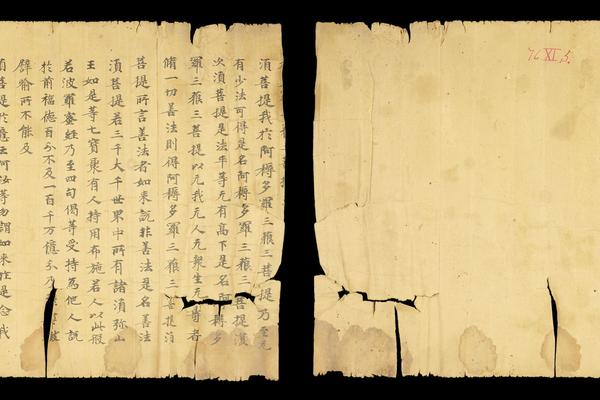 須菩提我於阿耨多羅三藐三菩提乃至无
有少法可得是名阿耨多羅三藐三菩提復
次須菩提是法平等无有高下是名阿耨多
羅三藐三菩提以无我无人无衆生无壽者
脩一切善法則得阿耨多羅三藐三菩提須
菩提所言善法者如来說非善法是名善法
須菩提若三千大千世界中所有諸須弥山
王如是等七寶聚有人持用布施若人以此般
若波羅蜜經乃至四句偈等受持為他人說
於前福德百分不及一百千万億分乃
譬喻所不能及
須菩提於意云何汝等勿謂如来作是念我
76 XI, 5.